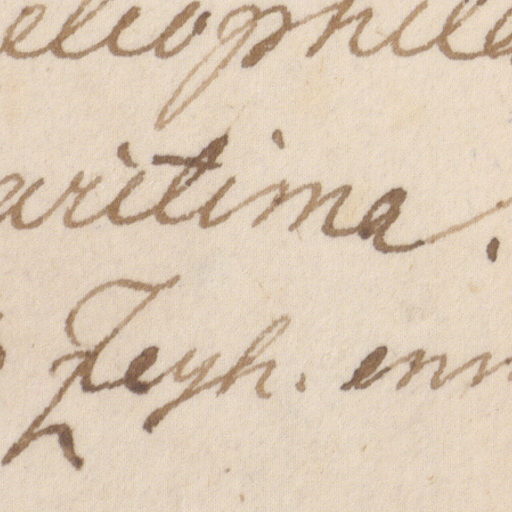 eliophila
aritima.
Zeyh. enn